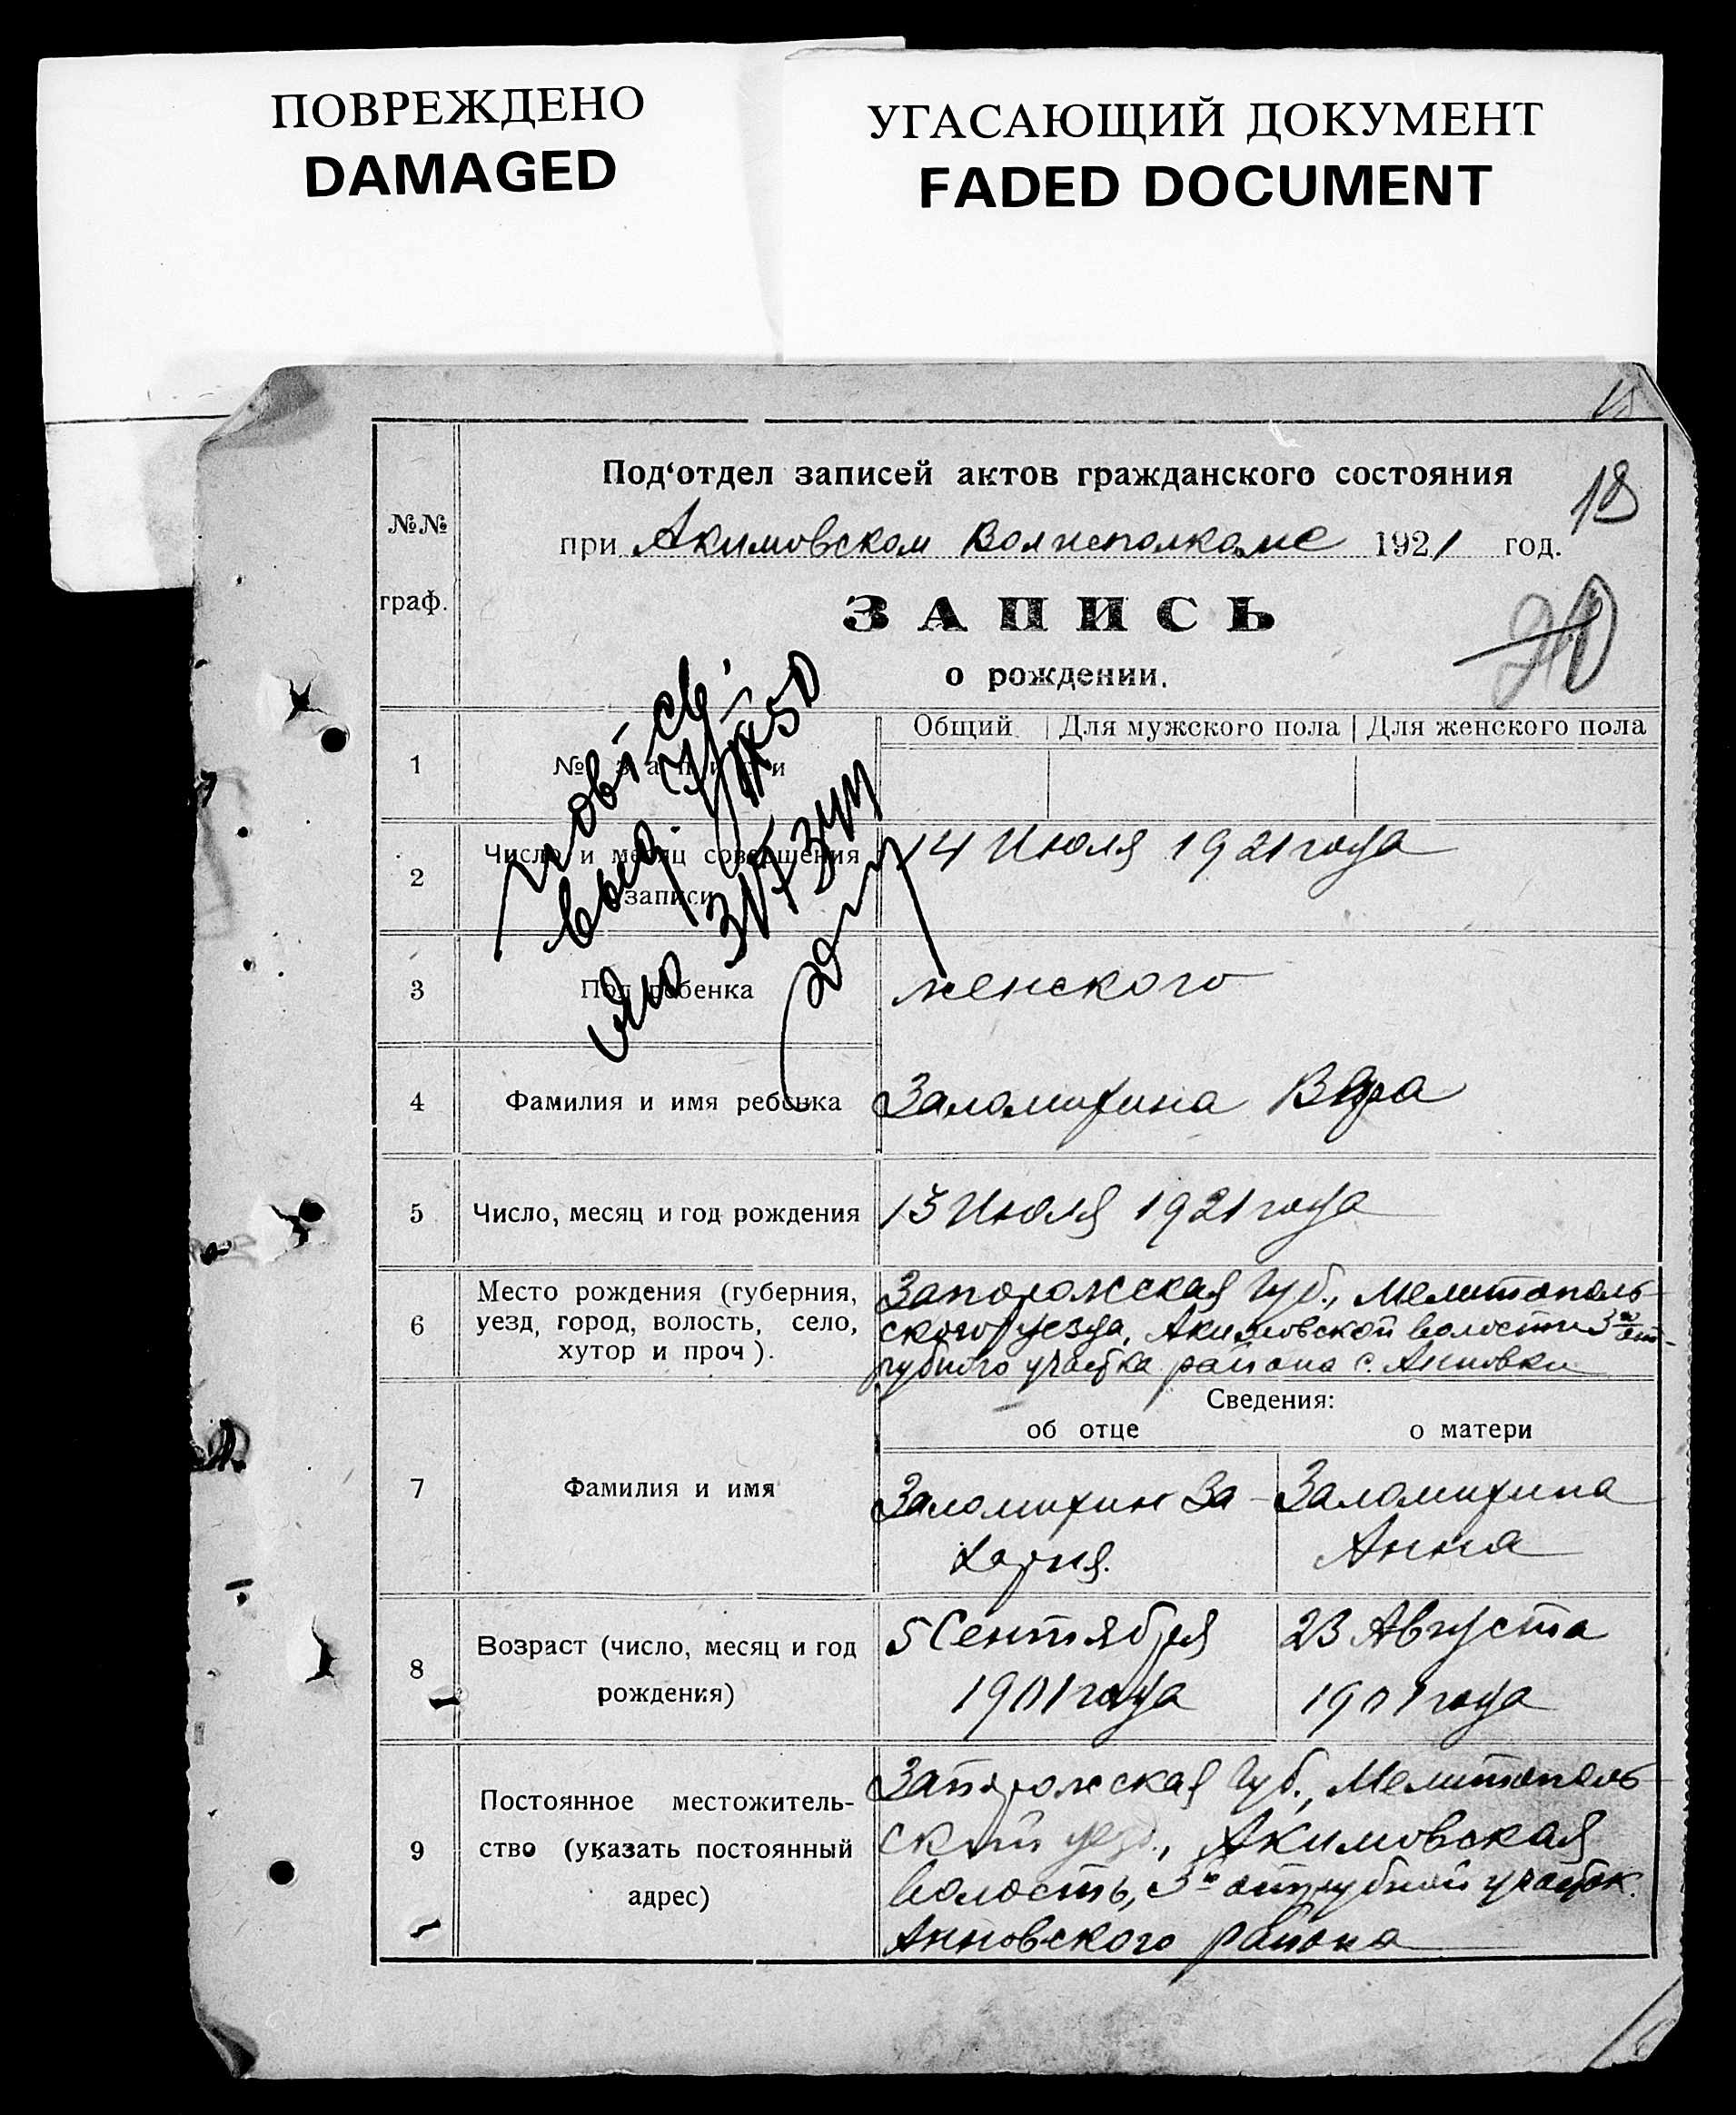 ПОВРЕЖДЕНО
DAMAGED
УГАСАЮЩИЙ ДОКУМЕНТ
FADED DOCUMENT
№№
граф.
Под‘отдел записей актов гражданского состояния
18
при Акимовском Волисполкоме 1921 год.
ЗАПИСЬ
о рождении.
20
Общий Для мужского пола Для женского пола
1 № записи
2 Число и месяц совершения
записи
14 Июля 1921 года
3 Пол ребенка женского
4 Фамилия и имя ребенка Заломихина Вера
5 Число, месяц и год рождения 13 Июля 1921 года
6 Место рождения (губерния,
уезд, город, волость, село,
хутор и проч).
Запорожская Губ., Мелитополь-
ского уезда, Акимовской волости 3го от-
рубного участка района с. Анновки
Сведения:
об отце о матери
7 Фамилия и имя
Заломихин За-
хария.
Заломихина
Анна
8 Возраст (число, месяц и год
рождения)
5 Сентября
1901 года
23 Августа
1901 года
9 Постоянное местожитель-
ство (указать постоянный
адрес)
Запорожская Губ., Мелитополь-
ский уезд., Акимовская
волость, 3й отрубной участок
Анновского района